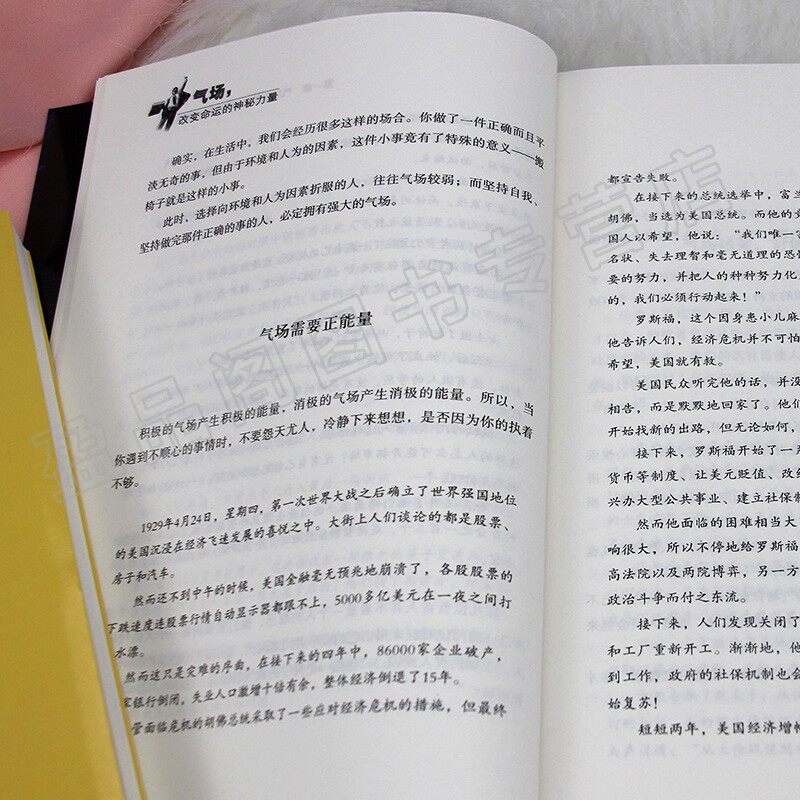 气场，
改变命运的神秘力量
确实，在生活中，我们会经历很多这样的场合。你做了一件正确而且平
淡无奇的事，但由于环境和人为的因素，这件小事竟有了特殊的意义——搬
椅子就是这样的小事。
此时，选择向环境和人为因素折服的人，往往气场较弱；而坚持自我、
坚持做完那件正确的事的人，必定拥有强大的气场。
气场需要正能量
积极的气场产生积极的能量，消极的气场产生消极的能量。所以，当
你遇到不顺心的事情时，不要怨天尤人，冷静下来想想，是否因为你的执着
不够。
1929年4月24日，星期四，第一次世界大战之后确立了世界强国地位
的美国沉浸在经济飞速发展的喜悦之中。大街上人们谈论的都是股票、
房子和汽车。
然而还不到中午的时候，美国金融毫无预兆地崩溃了，各股股票的
下跌速度连股票行情自动显示器都跟不上，5000多亿美元在一夜之间打
水漂。
然而这只是灾难的序曲，在接下来的四年中，86000家企业破产，
家银行倒闭，失业人口激增十倍有余，整体经济倒退了15年。
管面临危机的胡佛总统采取了一些应对经济危机的措施，但最终
都宣告失败。
在接下来的总统选举中，富兰
胡佛，当选为美国总统。而他的
国人以希望，他说：“我们唯一
名状、失去理智和毫无道理的恐
要的努力，并把人的种种努力化
的，我们必须行动起来！”
罗斯福，这个因身患小儿麻
他告诉人们，经济危机并不可怕
希望，美国就有救。
美国民众听完他的话，并没
相告，而是默默地回家了。他们
开始找新的出路，但无论如何，
接下来，罗斯福开始了一
货币等制度、让美元贬值、改
兴办大型公共事业、建立社保
然而他面临的困难相当大
响很大，所以不停地给罗斯福
高法院以及两院博弈，另一方
政治斗争而付之东流。
接下来，人们发现关闭了
和工厂重新开工。渐渐地，他
到工作，政府的社保机制也会
始复苏！
短短两年，美国经济增
盈品阁图书专营店